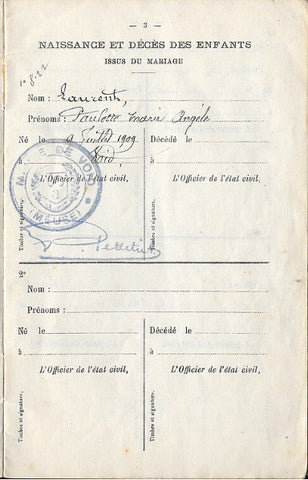 — 3 —
NAISSANCE ET DÉCÈS DES ENFANTS
ISSUS DU MARIAGE
Nom : Laurent,
Prénoms : Paulette Marie Angèle
Né le 9 Juillet 1909 Décédé le
à Void à
L'Officier de l'état civil, L'Officier de l'état civil,
DE VOID
(MEUSE)
Timbre et signature. Timbre et signature.
Pelletier
2°
Nom :
Prénoms :
Né le Décédé le
à à
L'Officier de l'état civil, L'Officier de l'état civil,
Timbre et signature. Timbre et signature.